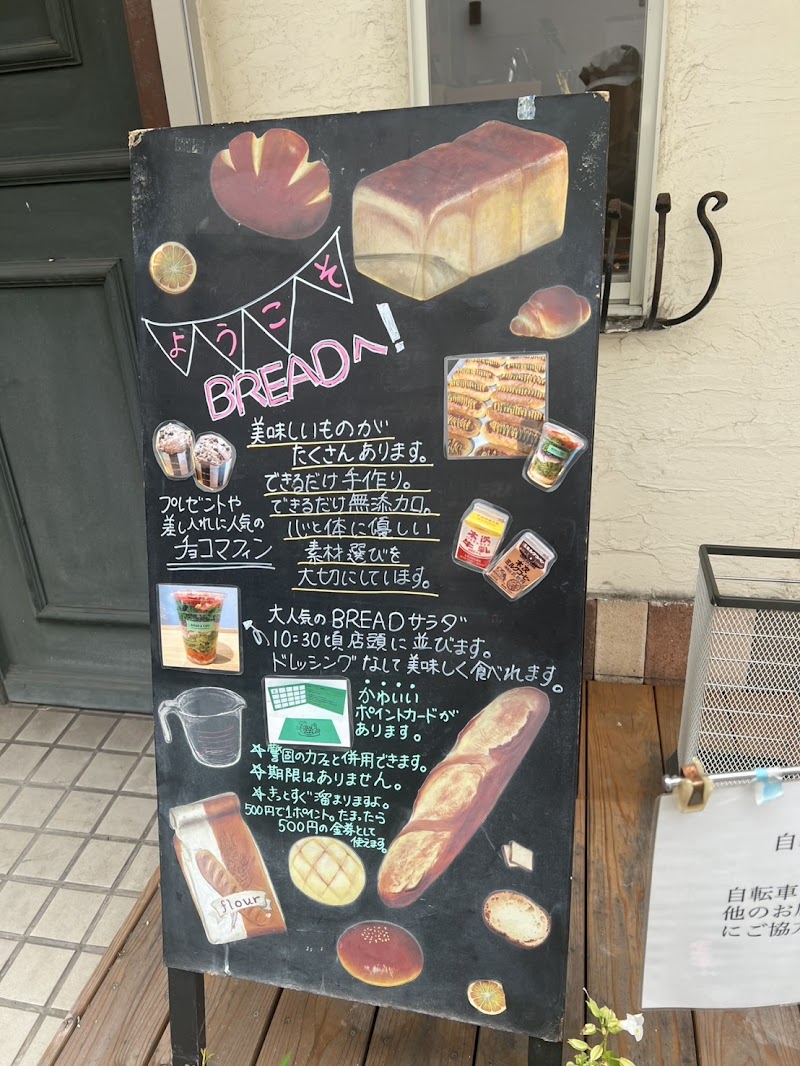 ようこそ
BREADへ!
美味しいものが
たくさんあります。
できるだけ手作り。
できるだけ無添加。
心と体に優しい
素材選びを
大切にしています。
プレゼントや
差し入れに人気の
チョコマフィン
大人気のBREADサラダ
10:30頃店頭に並びます。
ドレッシングなしで美味しく食べれます。
かわいい
ポイントカードが
あります。
☆警固のカフェと併用できます。
☆期限はありません。
☆きっとすぐ溜まりますよ。
500円で1ポイント。たまったら
500円の金券として
使えます。
flour
自転車
他のお
にご協